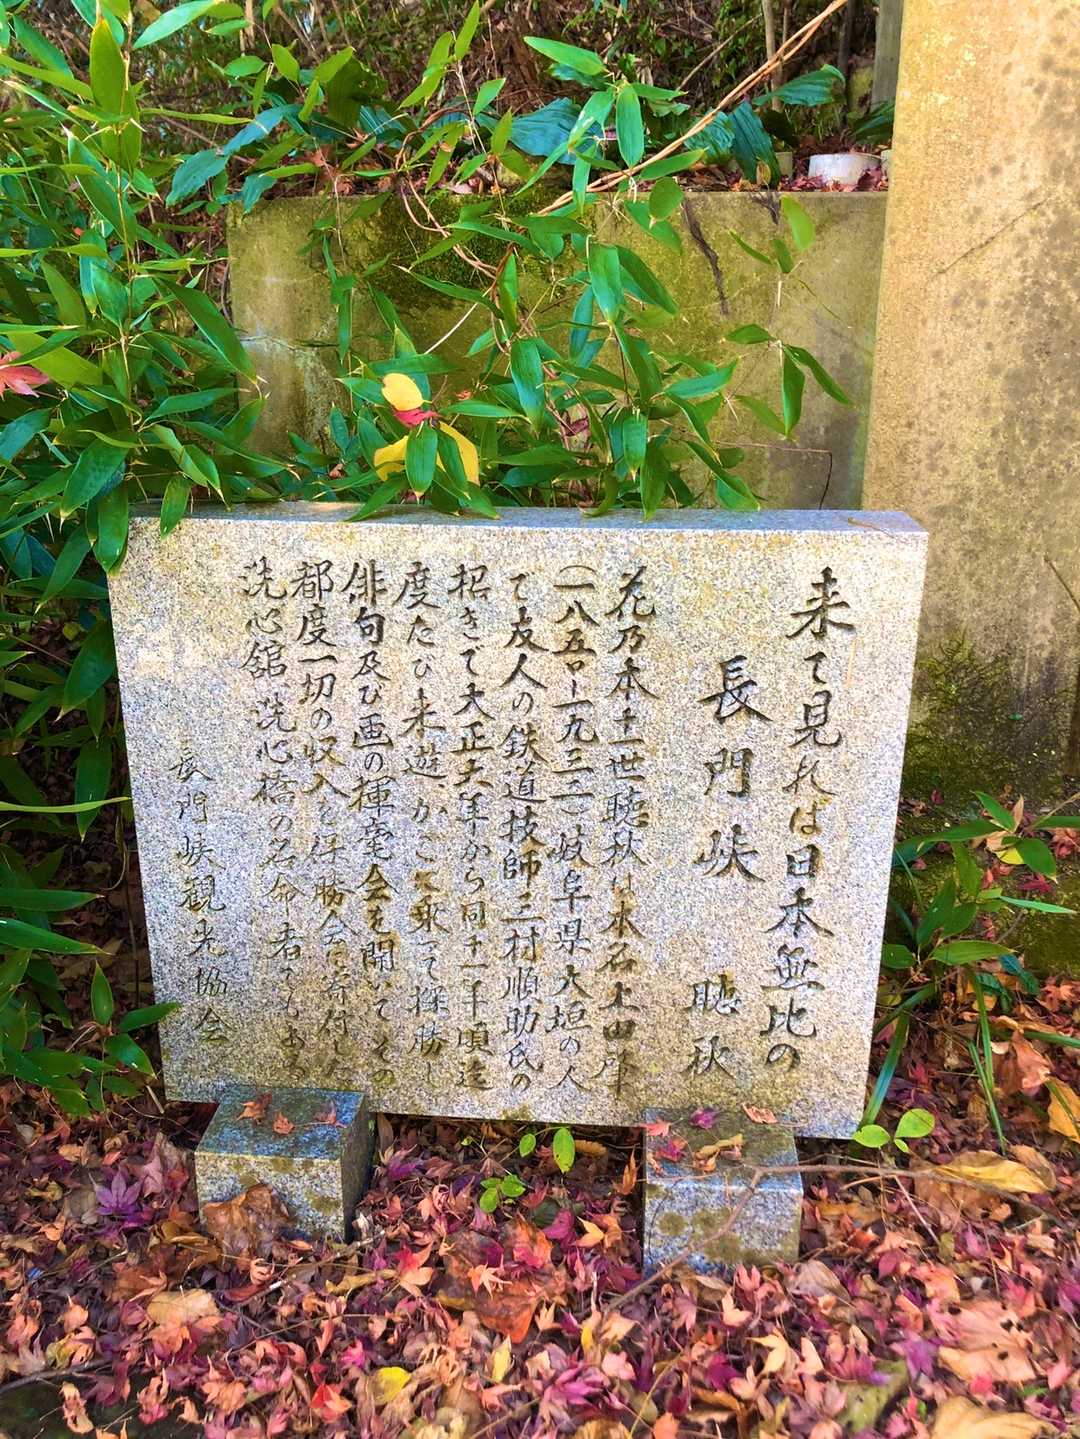 来て見れば日本無比の
長門峡
聴秋
花乃本十一世聴秋は本名上田肇
(一八五〇ー一九三二)岐阜県大垣の人
で友人の鉄道技師三村順助氏の
招きで大正六年から同十一年頃迄
度たび来遊、かごで乗って探勝し
俳句及び画の揮毫会を開いてその
都度一切の収入を保勝会に寄付した
洗心館、洗心橋の名命者でもある
長門峡観光協会